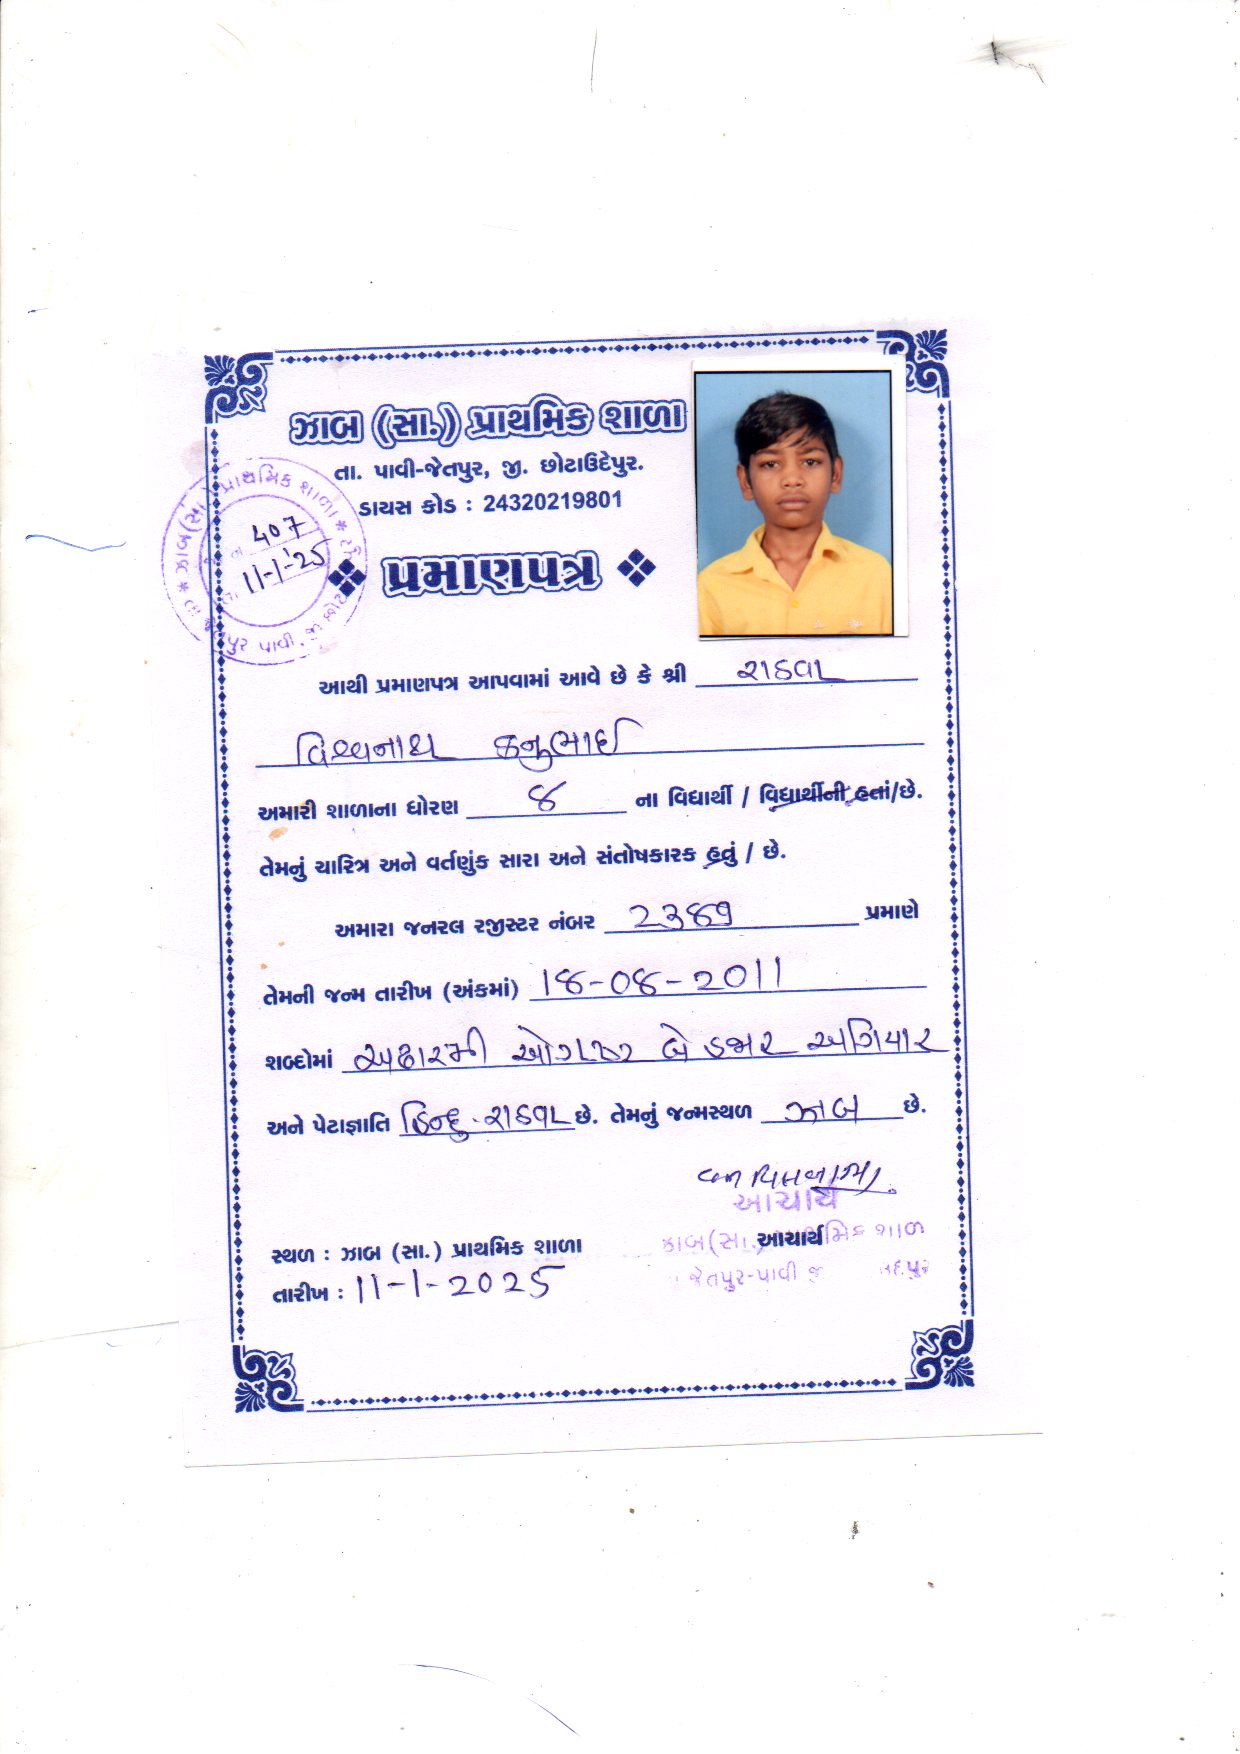 ઝાબ (સા.) પ્રાથમિક શાળા
તા. પાવી-જેતપુર, જી. છોટાઉદેપુર.
ડાયસ કોડ : 24320219801
* ઝાબ(સા.) પ્રાથમિક શાળા *
407
11-1-'25
પ્રમાણપત્ર
આથી પ્રમાણપત્ર આપવામાં આવે છે કે શ્રી રાઠવા
વિશ્વનાથ કનુભાઈ
અમારી શાળાના ધોરણ ૮ ના વિદ્યાર્થી / વિદ્યાર્થીની હતાં/છે.
તેમનું ચારિત્ર અને વર્તણુંક સારા અને સંતોષકારક હતું / છે.
અમારા જનરલ રજીસ્ટર નંબર ૨૩૪૧ પ્રમાણે
તેમની જન્મ તારીખ (અંકમાં) 1૮-0૮-2011
શબ્દોમાં અઢારમી ઓગષ્ટ બે હજાર અગિયાર
અને પેટાજ્ઞાતિ હિન્દુ-રાઠવા છે. તેમનું જન્મસ્થળ ઝાબ છે.
આચાર્ય
સ્થળ : ઝાબ (સા.) પ્રાથમિક શાળા આચાર્ય
તારીખ : 11-1-2025